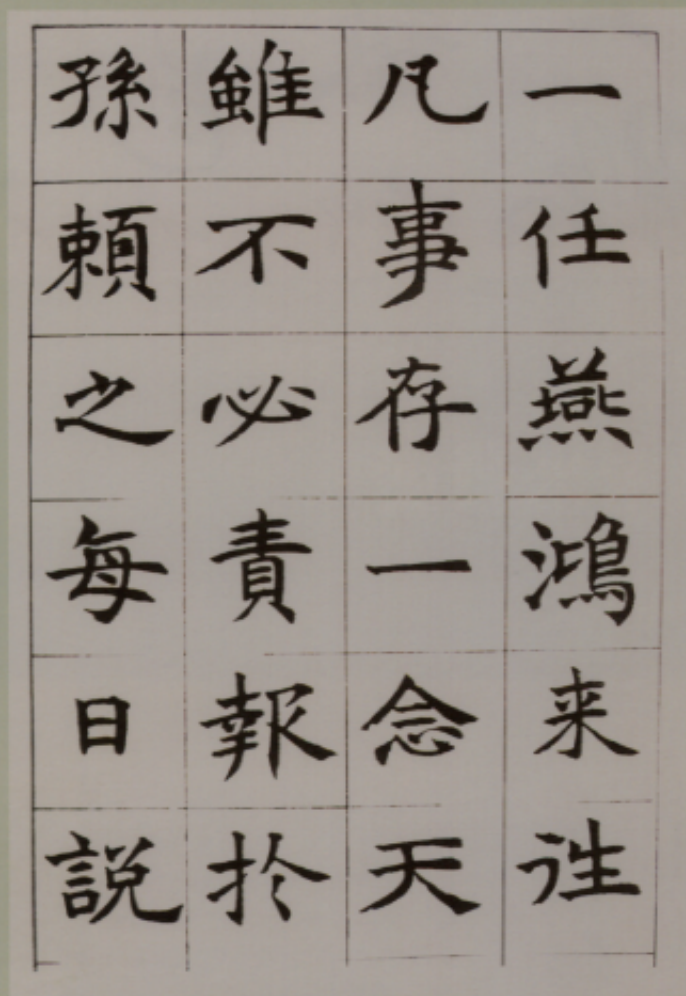 一任燕鴻来往
凡事存一念天
雖不必責報於
孫賴之每日説